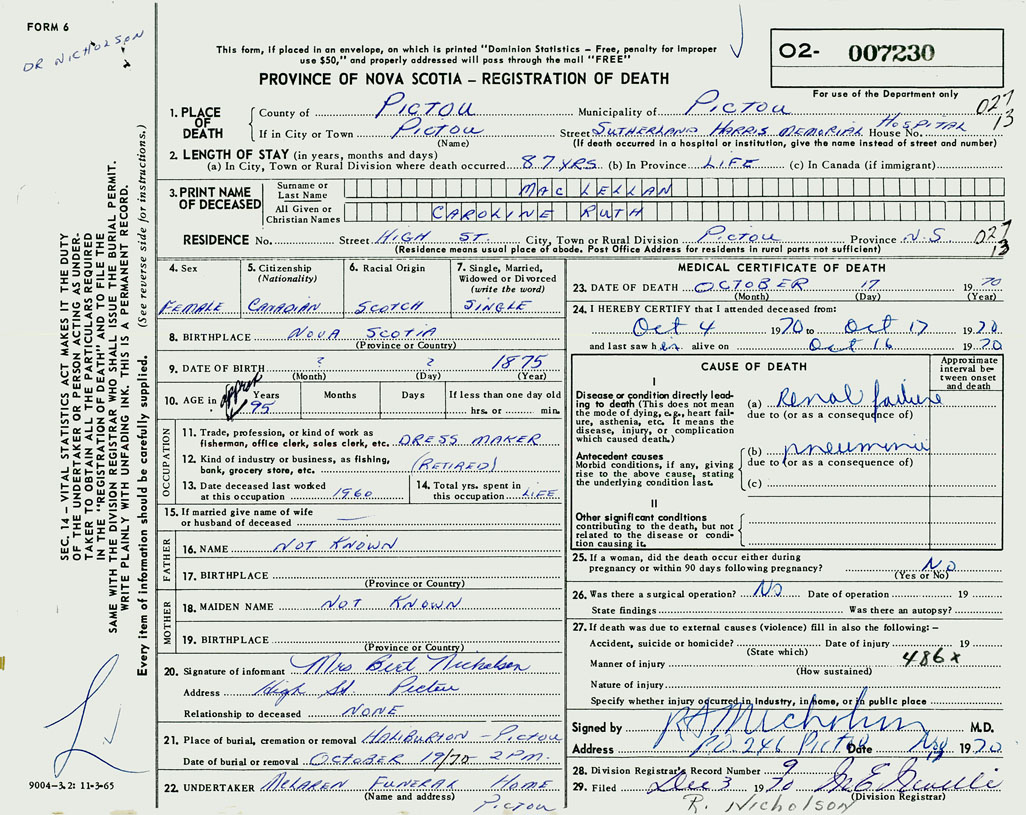 FORM 6
DR NICHOLSON
This form, if placed in an envelope, on which is printed "Dominion Statistics – Free, penalty for improper
use $50," and properly addressed will pass through the mail "FREE"
PROVINCE OF NOVA SCOTIA – REGISTRATION OF DEATH
O2- 007230
For use of the Department only
027
13
1. PLACE OF DEATH
County of PICTOU Municipality of PICTOU
If in City or Town PICTOU Street SUTHERLAND HARRIS MEMORIAL House No. HOSPITAL
(Name) (If death occurred in a hospital or institution, give the name instead of street and number)
2. LENGTH OF STAY (in years, months and days)
(a) In City, Town or Rural Division where death occurred 87 YRS (b) In Province LIFE (c) In Canada (if immigrant)
3. PRINT NAME OF DECEASED
Surname or Last Name MAC LELLAN
All Given or Christian Names CAROLINE RUTH
RESIDENCE No. Street HIGH ST. City, Town or Rural Division PICTOU Province N.S 027
13
(Residence means usual place of abode. Post Office Address for residents in rural parts not sufficient)
4. Sex
FEMALE
5. Citizenship
(Nationality)
CANADIAN
6. Racial Origin
SCOTCH
7. Single, Married,
Widowed or Divorced
(write the word)
SINGLE
8. BIRTHPLACE NOVA SCOTIA
(Province or Country)
9. DATE OF BIRTH ? ? 1875
(Month) (Day) (Year)
10. AGE in approx Years 95 Months Days If less than one day old
hrs. or min.
OCCUPATION
11. Trade, profession, or kind of work as
fishermen, office clerk, sales clerk, etc. DRESS MAKER
12. Kind of industry or business, as fishing,
bank, grocery store, etc. (RETIRED)
13. Date deceased last worked
at this occupation 1960
14. Total yrs. spent in
this occupation LIFE
15. If married give name of wife
or husband of deceased —
FATHER
16. NAME NOT KNOWN
17. BIRTHPLACE
(Province or Country)
MOTHER
18. MAIDEN NAME NOT KNOWN
19. BIRTHPLACE
(Province or Country)
20. Signature of informant Mrs Bert Nicholson
Address High St Pictou
Relationship to deceased NONE
21. Place of burial, cremation or removal HALIBURTON - PICTOU
Date of burial or removal OCTOBER 19/70 - 2 PM.
22. UNDERTAKER MCLAREN FUNERAL HOME
(Name and address) PICTOU
MEDICAL CERTIFICATE OF DEATH
23. DATE OF DEATH OCTOBER 17 1970
(Month) (Day) (Year)
24. I HEREBY CERTIFY that I attended deceased from:
Oct 4 1970 to Oct 17 1970
and last saw her alive on Oct 16 1970
CAUSE OF DEATH
Approximate
interval be-
tween onset
and death
I
Disease or condition directly lead-
ing to death (This does not mean
the mode of dying, e.g., heart fail-
ure, asthenia, etc. It means the
disease, injury, or complication
which caused death.)
(a) Renal failure
due to (or as a consequence of)
Antecedent causes
Morbid conditions, if any, giving
rise to the above cause, stating
the underlying condition last.
(b) pneumonia
due to (or as a consequence of)
(c)
II
Other significant conditions
contributing to the death, but not
related to the disease or condi-
tion causing it.
25. If a woman, did the death occur either during
pregnancy or within 90 days following pregnancy? No
(Yes or No)
26. Was there a surgical operation? No Date of operation 19
State findings Was there an autopsy?
27. If death was due to external causes (violence) fill in also the following: –
Accident, suicide or homicide? Date of injury 19
(State which)
Manner of injury 486x
(How sustained)
Nature of injury
Specify whether injury occurred in industry, in home, or in public place
Signed by M.D.
Address PO 246 Pictou Date 1970
28. Division Registrar's Record Number 9
29. Filed Dec 3 1970
(Division Registrar)
R. NICHOLSON
SEC. 14 – VITAL STATISTICS ACT MAKES IT THE DUTY
OF THE UNDERTAKER OR PERSON ACTING AS UNDER-
TAKER TO OBTAIN ALL THE PARTICULARS REQUIRED
IN THE "REGISTRATION OF DEATH" AND TO FILE THE
SAME WITH THE DIVISION REGISTRAR WHO SHALL ISSUE THE BURIAL PERMIT.
WRITE PLAINLY WITH UNFADING INK. THIS IS A PERMANENT RECORD.
Every item of information should be carefully supplied. (See reverse side for instructions.)
9004-3.2: 11-3-65